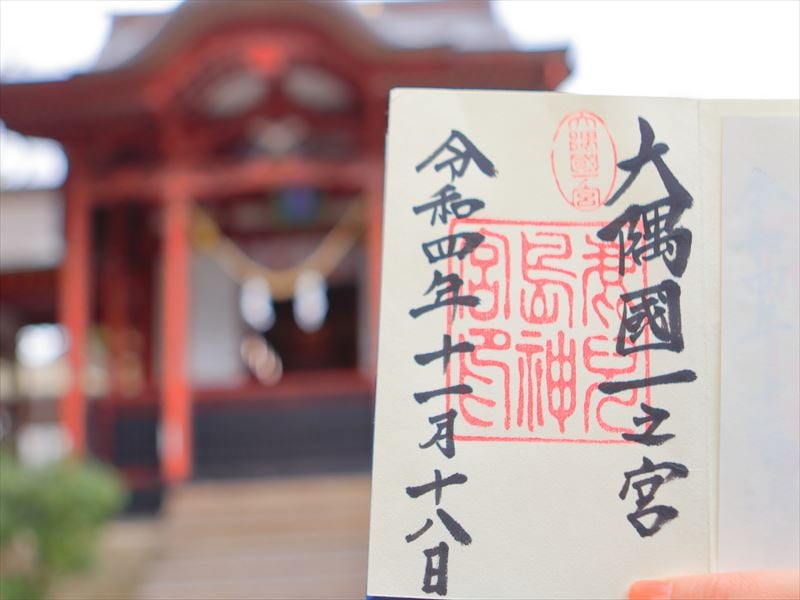 大隅國一之宮
大隅國一宮
鹿兒島神宮印
令和四年十一月十八日